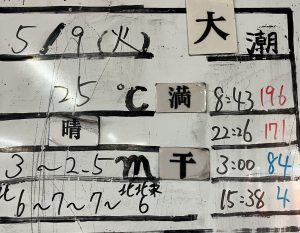 5/9(火) 大 潮
25 ℃ 満 8:43 196
晴 22:26 171
3～2.5m 干 3:00 84
北 北北東 15:38 4
6～7～7～6